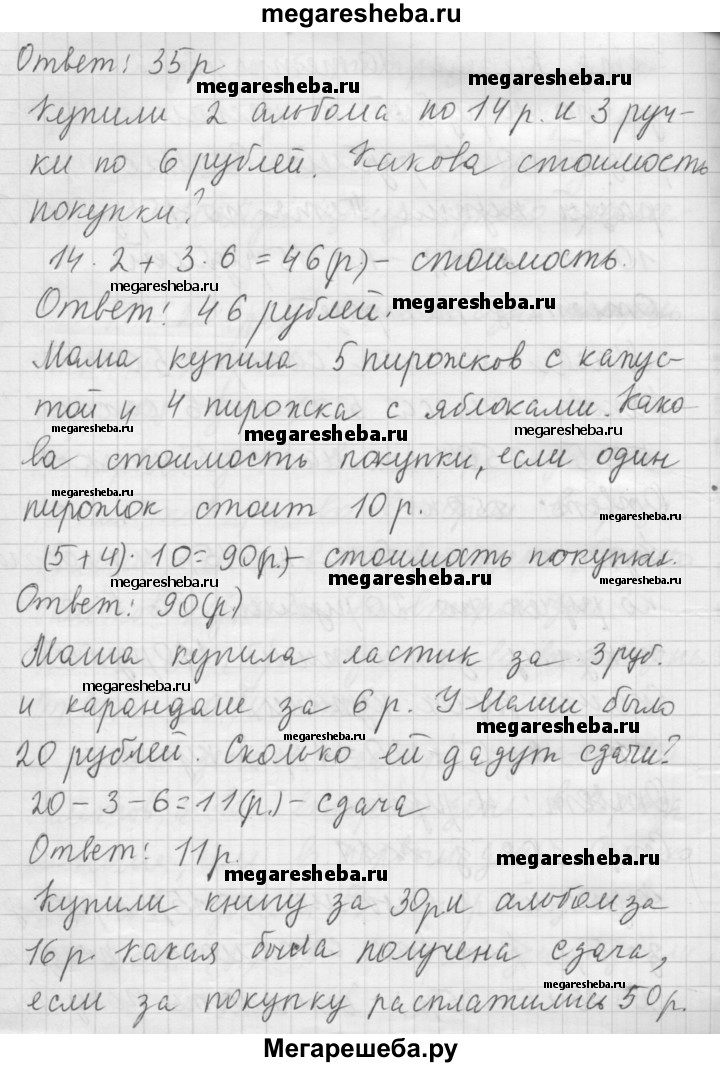 megaresheba.ru
Ответ: 35р
megaresheba.ru
Купили 2 альбома по 14 р. и 3 руч-
ки по 6 рублей. Какова стоимость
megaresheba.ru
покупки?
14 · 2 + 3 · 6 = 46(р.) – стоимость.
megaresheba.ru
megaresheba.ru
Ответ: 46 рублей.
megaresheba.ru
Мама купила 5 пирожков с капус-
той и 4 пирожка с яблоками. Како-
megaresheba.ru
megaresheba.ru
megaresheba.ru
ва стоимость покупки, если один
megaresheba.ru
пирожок стоит 10 р.
megaresheba.ru
(5 + 4) · 10 = 90(р.) – стоимость покупки.
megaresheba.ru
Ответ: 90(р.)
Маша купила ластик за 3 руб.
megaresheba.ru
и карандаш за 6 р. У Маши было
megaresheba.ru
megaresheba.ru
20 рублей. Сколько ей дадут сдачи?
20 – 3 – 6 = 11(р.) – сдача
Ответ: 11 р.
megaresheba.ru
megaresheba.ru
Купили книгу за 30р и альбом за
16 р. Какая была получена сдача,
megaresheba.ru
если за покупку расплатились 50 р.
megaresheba.ru
Мегарешеба.ру